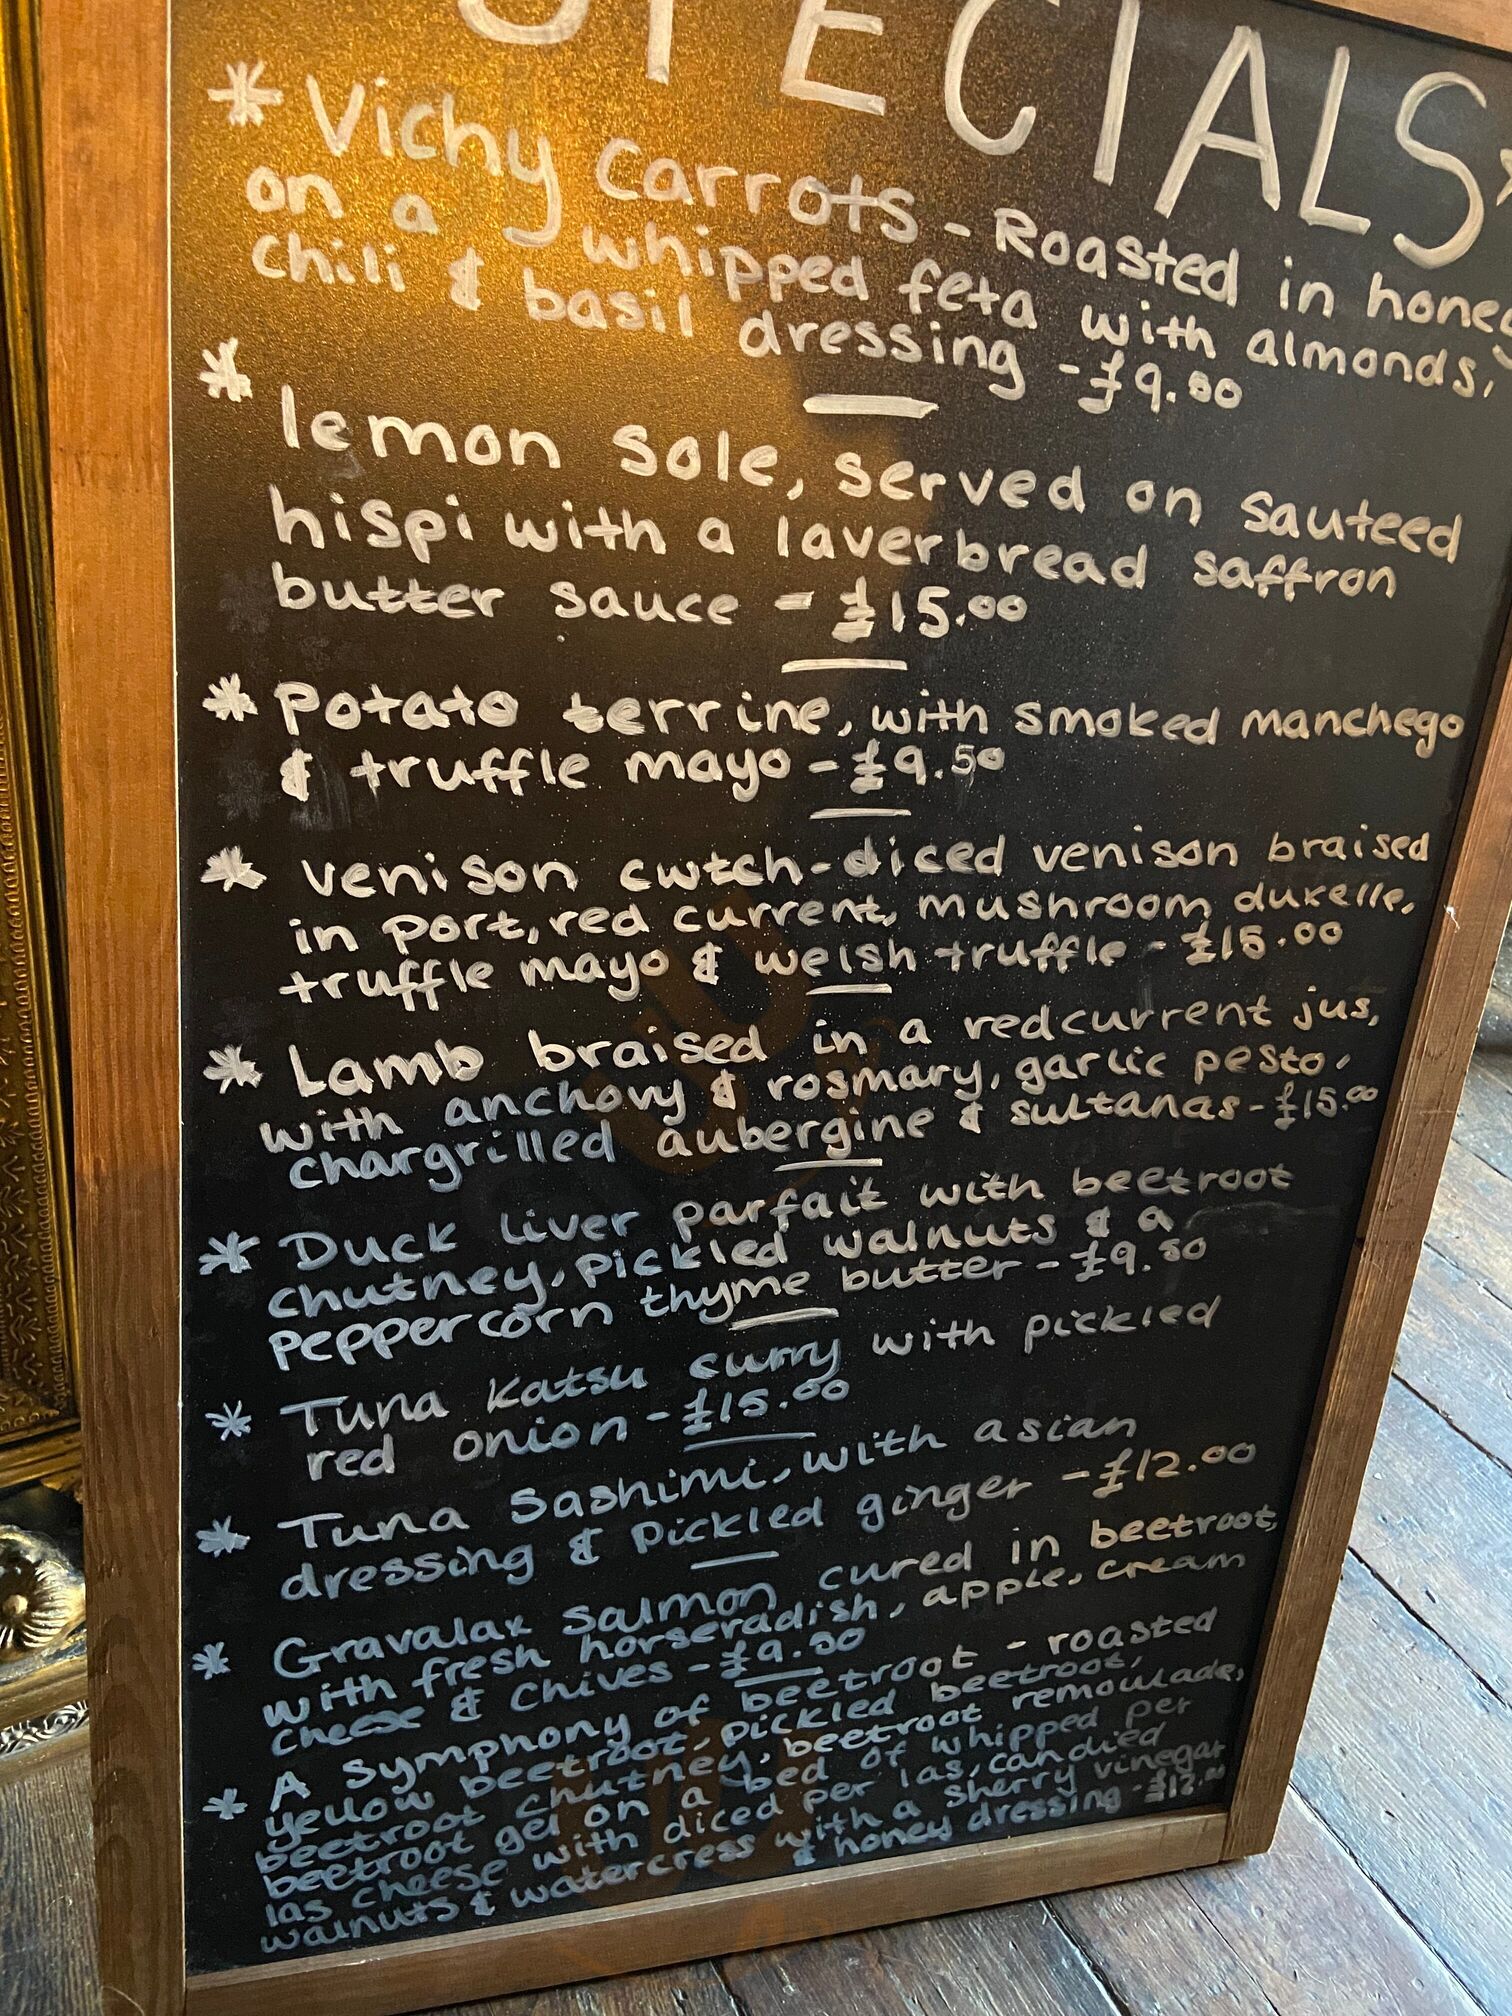 SPECIALS*
* Vichy Carrots - Roasted in honey
on a whipped feta with almonds,
chili & basil dressing - £9.00
* lemon sole, served on sauteed
hispi with a laverbread saffron
butter sauce - £15.00
* Potato terrine, with smoked manchego
& truffle mayo - £9.50
* venison cwtch - diced venison braised
in port, red current, mushroom duxelle,
truffle mayo & welsh truffle - £15.00
* Lamb braised in a redcurrent jus,
with anchovy & rosmary, garlic pesto,
chargrilled aubergine & sultanas - £15.00
* Duck liver parfait with beetroot
chutney, pickled walnuts & a
peppercorn thyme butter - £9.50
* Tuna Katsu curry with pickled
red onion - £15.00
* Tuna Sashimi, with asian
dressing & pickled ginger - £12.00
* Gravalax salmon cured in beetroot,
with fresh horseradish, apple, cream
cheese & chives - £9.50
* A symphony of beetroot - roasted
yellow beetroot, pickled beetroot,
beetroot chutney, beetroot remoulade,
beetroot gel on a bed of whipped per
las cheese with diced per las, candied
walnuts & watercress with a sherry vinegar
& honey dressing - £12.00